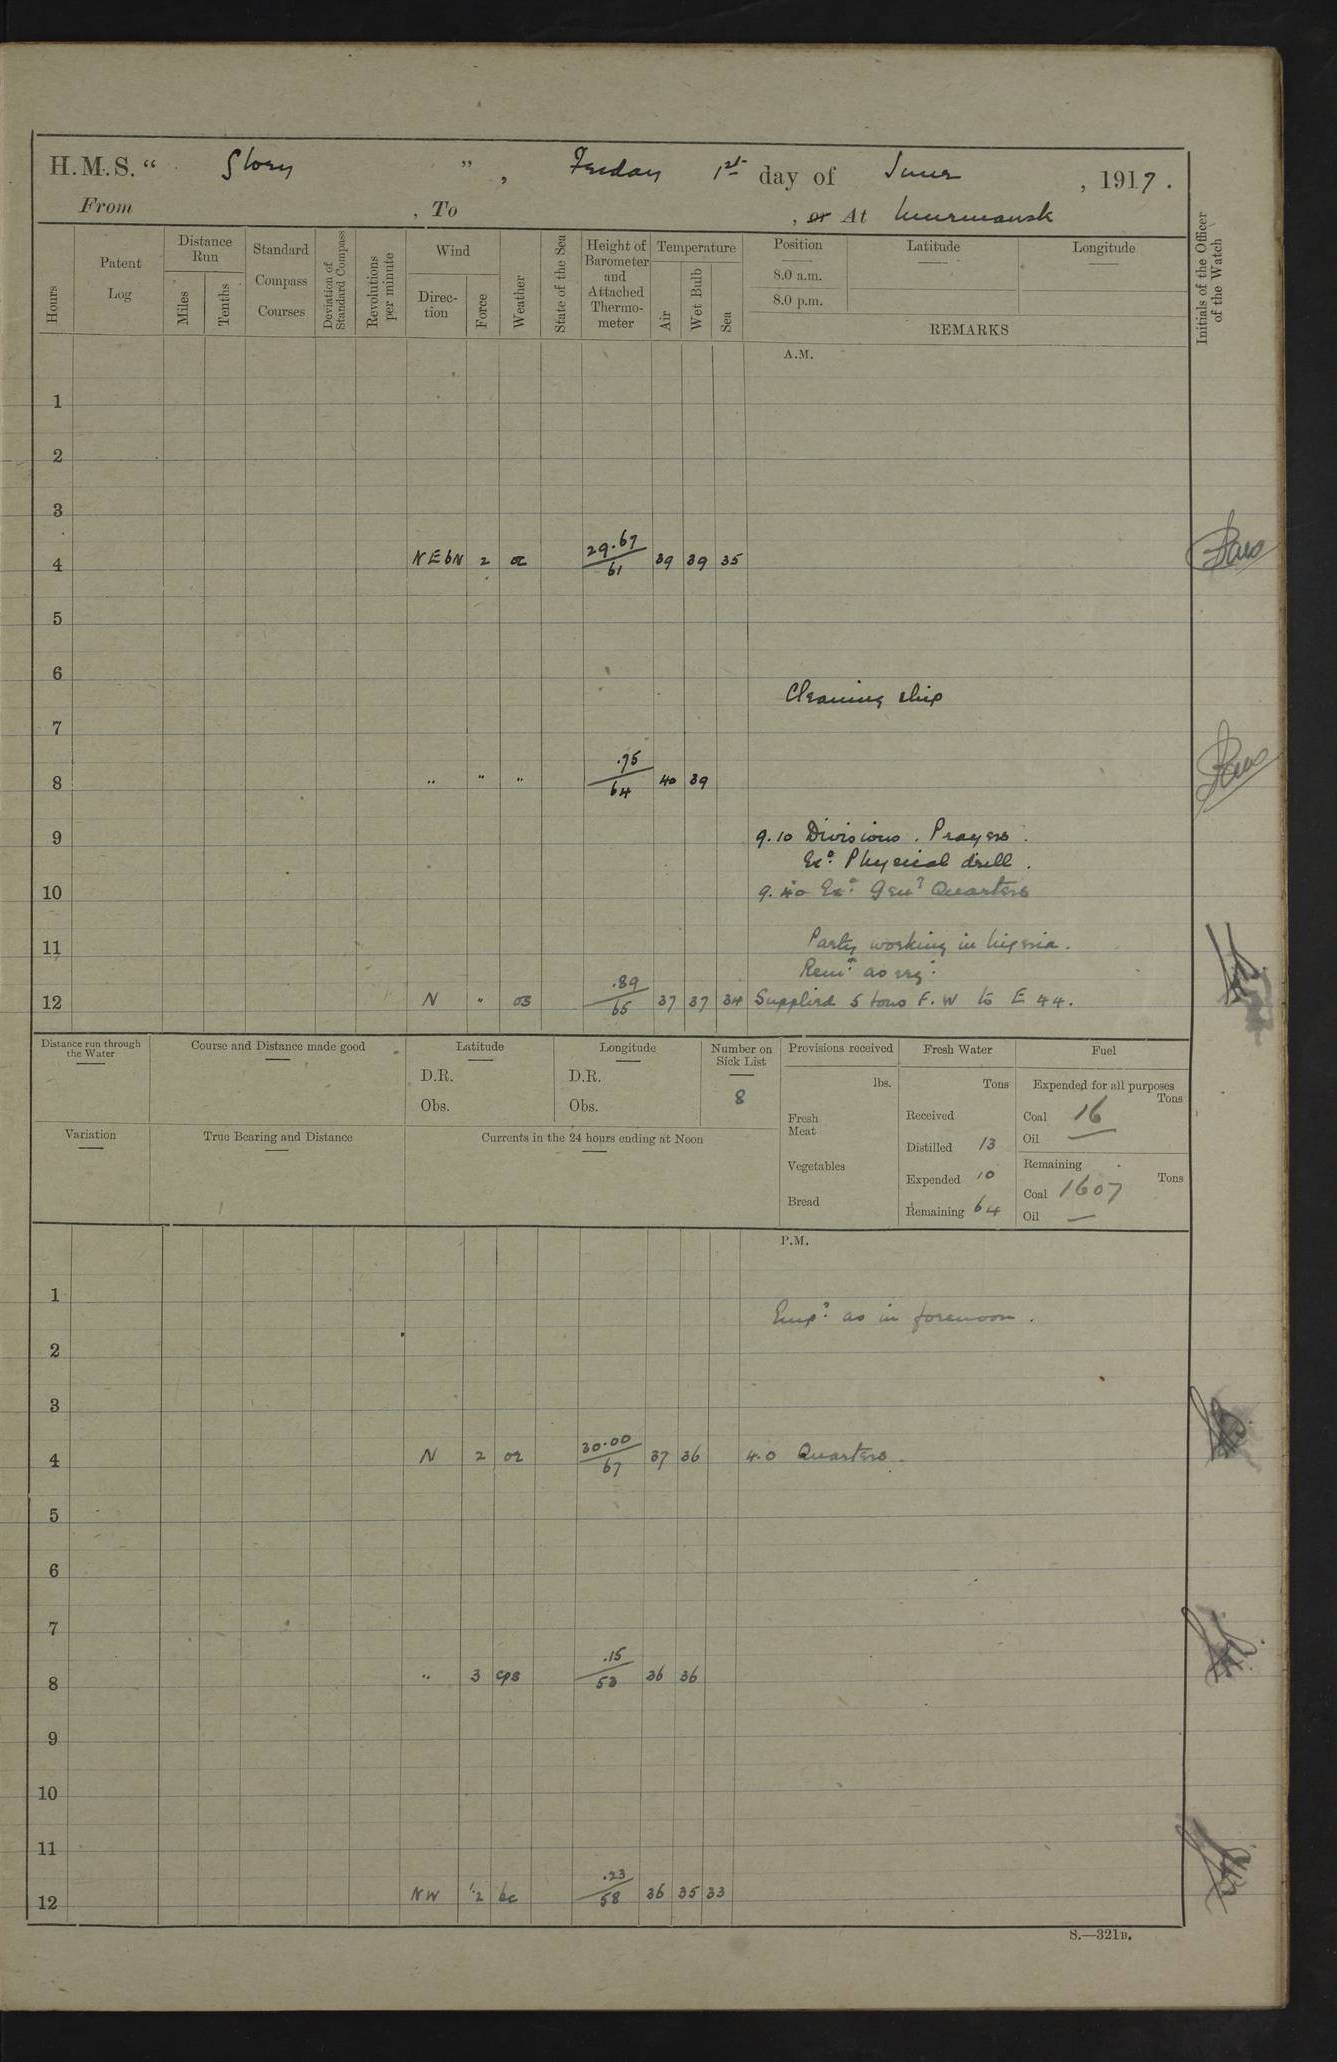 H.M.S. “ Glory ” , Friday 1st day of June , 1917 .
From , To , or At Murmansk
Hours
Patent Log
Distance Run
Miles
Tenths
Standard Compass Courses
Deviation of Standard Compass
Revolutions per minute
Wind
Direc-tion
Force
Weather
State of the Sea
Height of Barometer and Attached Thermo-meter
Temperature
Air
Wet Bulb
Sea
Position
8.0 a.m.
8.0 p.m.
Latitude
Longitude
REMARKS
Initials of the Officer of the Watch
A.M.
1
2
3
4 NEbN 2 29.67/61 39 39 35
5
6
Cleaning ship
7
8 " " " .75/64 40 39
9 9.10 Divisions . Prayers .
Exd. Physical drill .
10 9.40 Exd. Genl Quarters
11 Party working in Nigeria .
Remr. as reqd.
12 N " os .89/65 37 37 34 Supplied 5 tons F.W to E 44.
Distance run through the Water
Course and Distance made good
Latitude
D.R.
Obs.
Longitude
D.R.
Obs.
Number on Sick List
8
Provisions received
lbs.
Fresh Meat
Vegetables
Bread
Fresh Water
Tons
Received
Distilled 13
Expended 10
Remaining 64
Fuel
Expended for all purposes
Tons
Coal 16
Oil —
Remaining
Tons
Coal 1607
Oil —
Variation
True Bearing and Distance
Currents in the 24 hours ending at Noon
P.M.
1
Empd. as in forenoon .
2
3
4 N 2 30.00/67 37 36 4.0 Quarters .
5
6
7
8 " 3 cps .15/58 36 36
9
10
11
12 NW 1.2 bc .23/58 36 35 33
S.—321B.